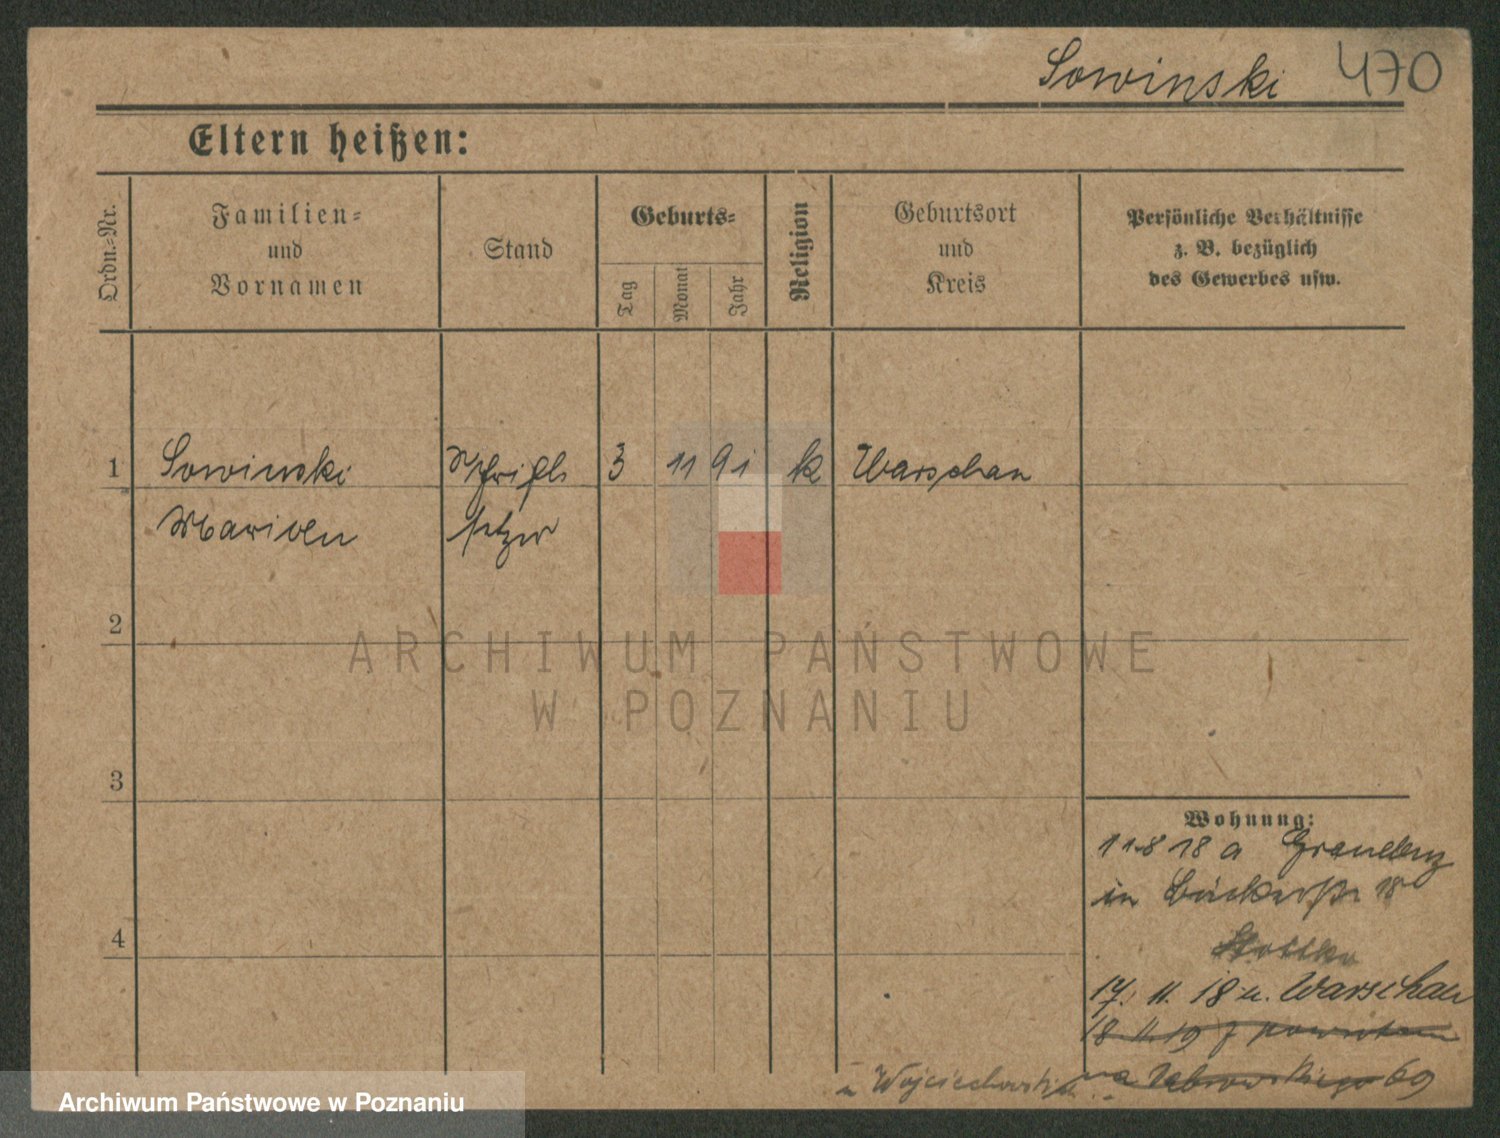 Sowinski 470
Eltern heißen:
Ordn.=Nr.
Familien=
und
Vornamen
Stand
Geburts=
Tag
Monat
Jahr
Religion
Geburtsort
und
Kreis
Persönliche Verhältnisse
z. B. bezüglich
des Gewerbes usw.
1 Sowinski Schrift 3 11 91 k Warschau
Marian setzer
2
3
4
Wohnung:
11.8 18 a Graudenz
in Bäckerstr 18
17. 11. 18 n. Warschau
18 11 19 z powrotem
u Wojciechowski na Dabrowskiego 69
ARCHIWUM PAŃSTWOWE
W POZNANIU
Archiwum Państwowe w Poznaniu